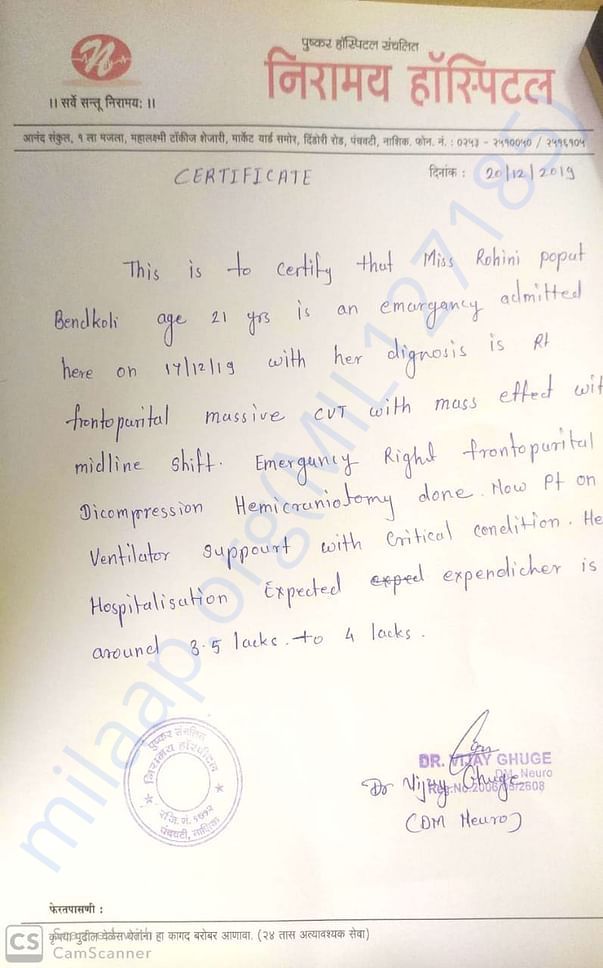 पुष्कर हॉस्पिटल संचलित
निरामय हॉस्पिटल
।। सर्वे सन्तू निरामयः ।।
आनंद संकुल, १ ला मजला, महालक्ष्मी टॉकीज शेजारी, मार्केट यार्ड समोर, दिंडोरी रोड, पंचवटी, नाशिक. फोन. नं. : ०२५३ - २५१००५० / २५१६१०५
CERTIFICATE
दिनांक : 20/12/2019
This is to certify that Miss Rohini popat
Bendkoli age 21 yrs is an emargancy admitted
here on 17/12/19 with her dignosis is Rt
frontopurital massive CVT with mass effect wit
midline shift. Emergancy Right frontopurital
Dicompression Hemicraniotomy done. Now Pt on
Ventilator suppourt with critical condition. He
Hospitalisation Expected exped expendicher is
around 3.5 lacks. to 4 lacks.
पुष्कर संचलित
निरामय हॉस्पिटल
पंचवटी, नाशिक
DR. VIJAY GHUGE
DM. Neuro
Dr Vijay Ghuge
(DM Neuro)
फेरतपासणी :
कृपया पुढील वेळेस येतांना हा कागद बरोबर आणावा. (२४ तास अत्यावश्यक सेवा)
CS CamScanner
milaap.org(MIL127185)